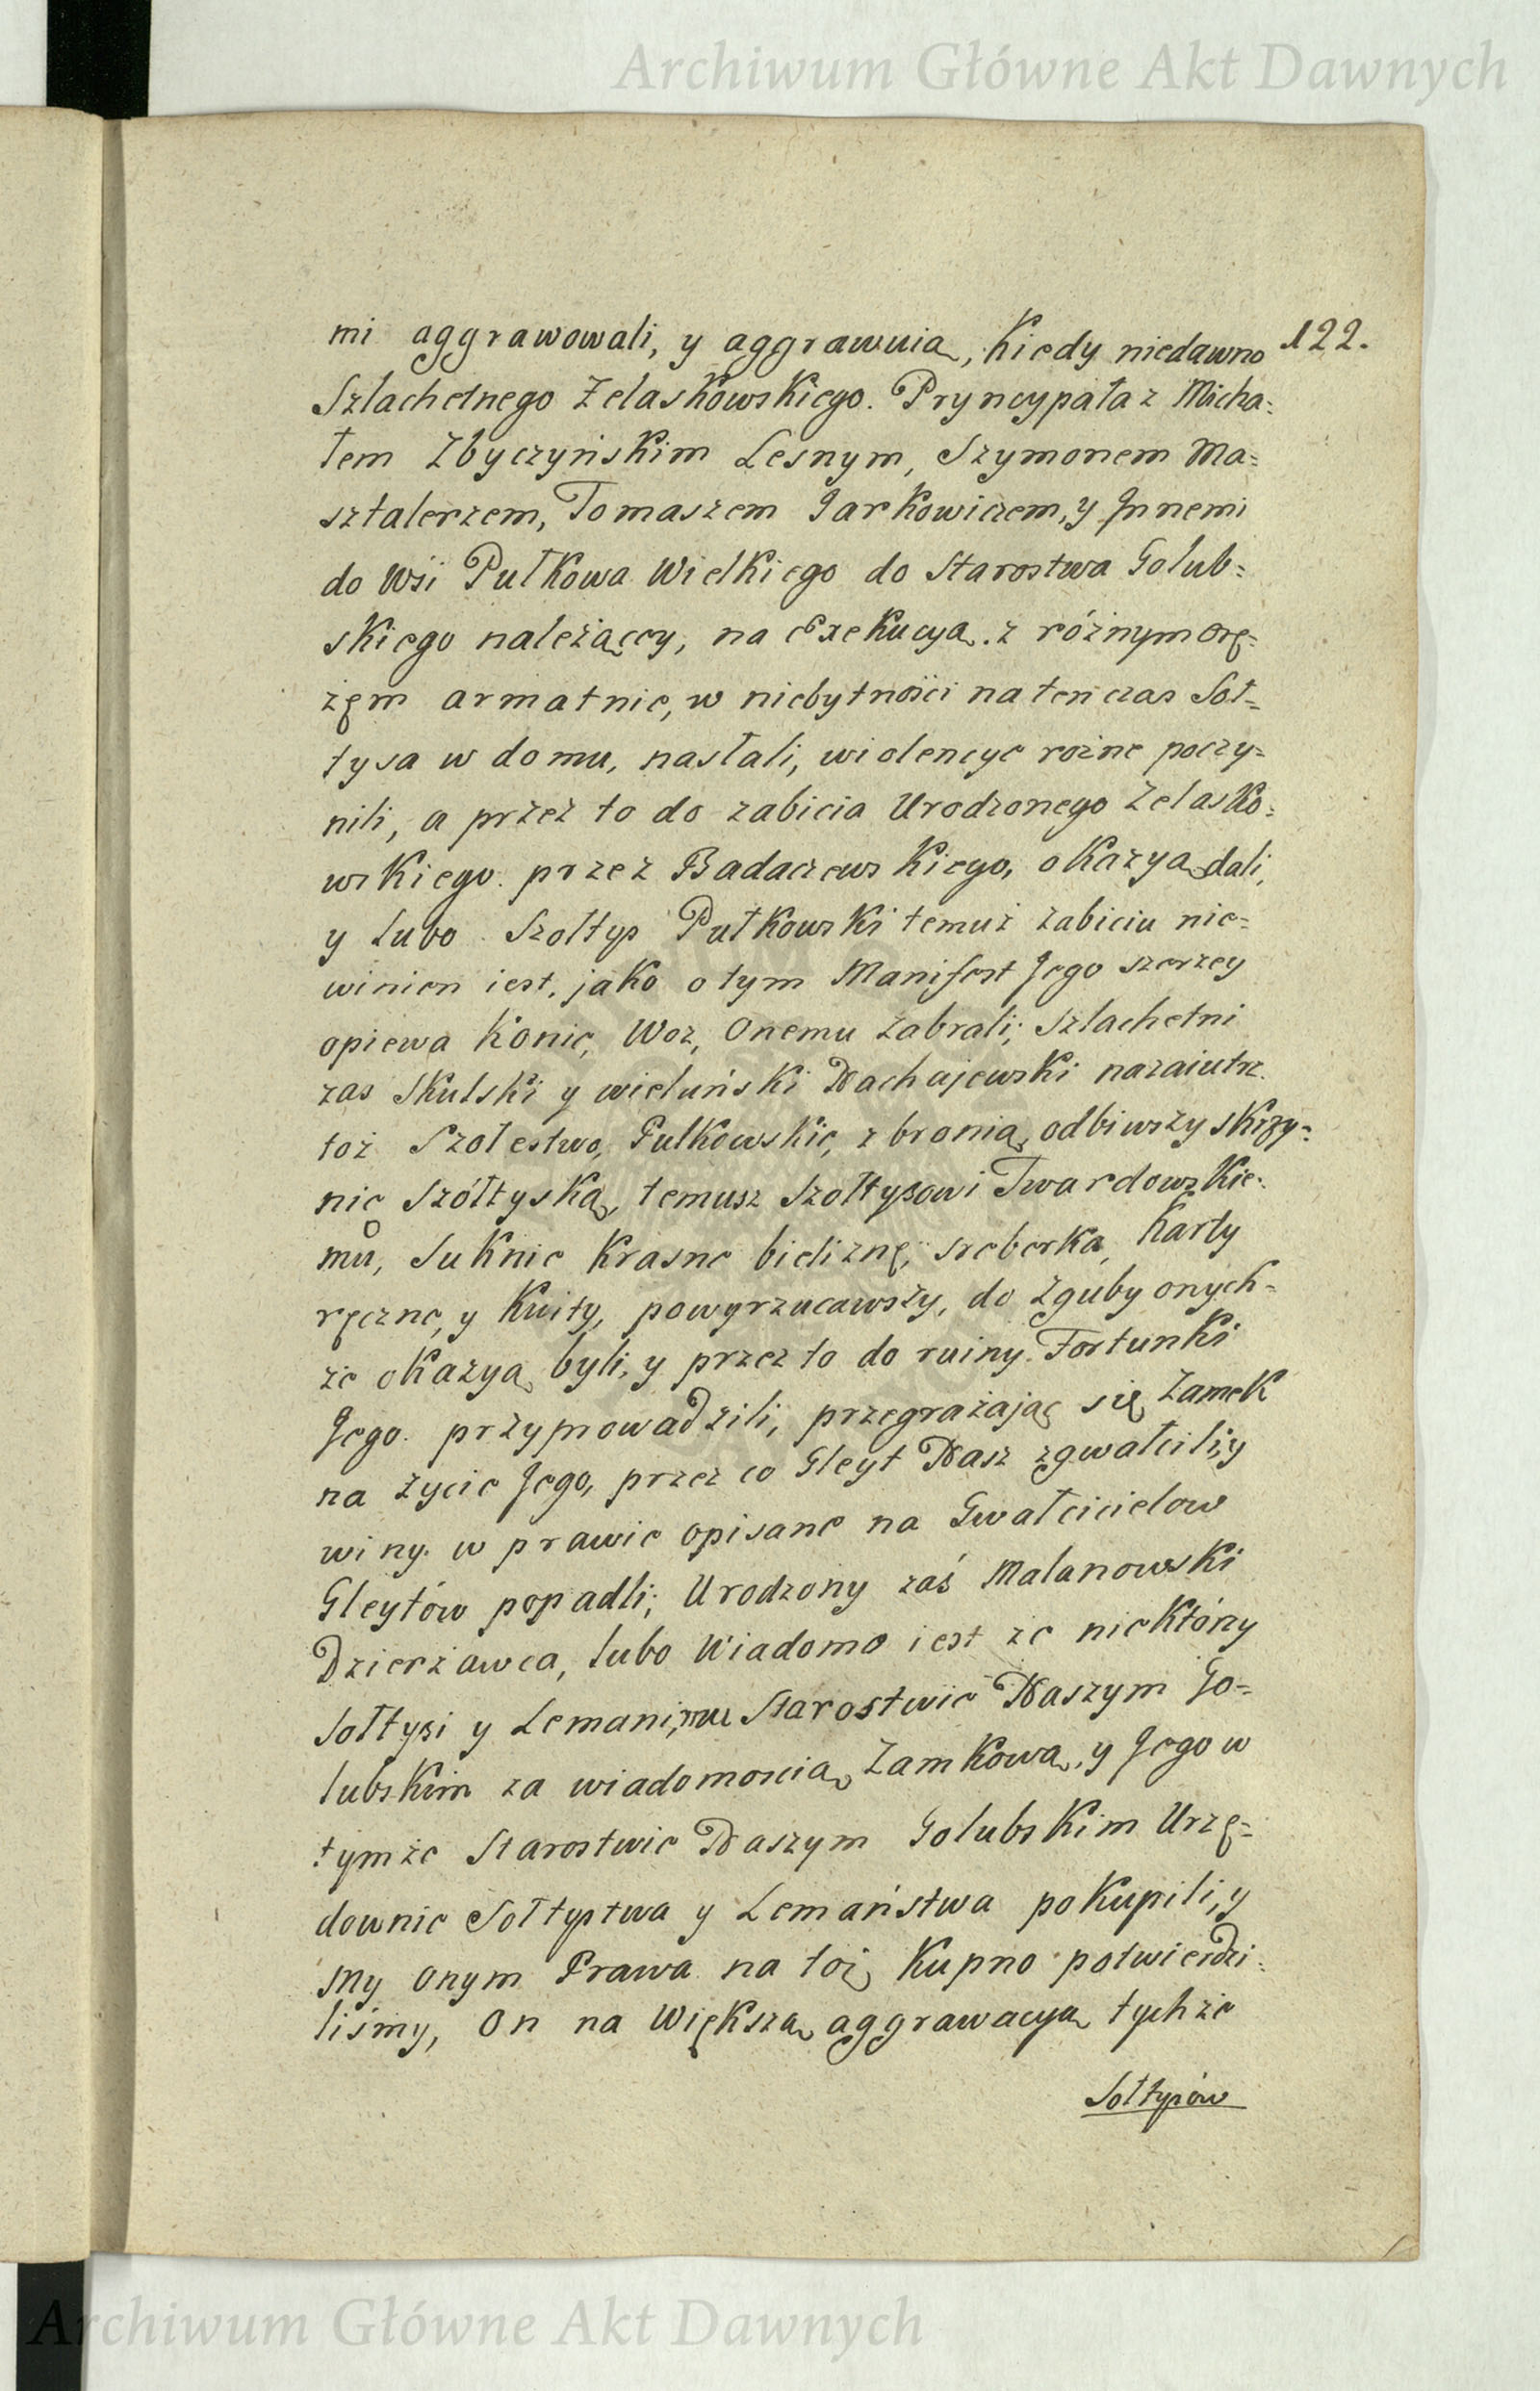 Archiwum Główne Akt Dawnych
122.
mi aggrawowali, y aggrawuią, Kiedy niedawno
Szlachetnego Zelaskowskiego. Pryncypała z Micha=
łem Zbyczyńskim Lesnym, Szymonem Ma=
sztalerzem, Tomaszem Jarkowiczem, y Jnnemi
do Wsi Pułkowa Wielkiego do Starostwa Golub=
skiego należącey, na Exekucyą. z różnym orę=
żęm armatnie, w niebytności na ten czas Soł=
tysa w domu, nasłali, wiolencye rożne poczy=
nili, a przez to do zabicia Urodzonego Zelasko=
wskiego. przez Badaczewskiego, okazyą dali,
y lubo Szołtys Pułkowski temuż zabiciu nie=
winien iest. jako o tym Manifest Jego szerzey
opiewa Konie, Woz, Onemu zabrali; Szlachetni
zas Skulski y wieluński Nachajewski nazaiutrz.
toż Szołestwo, Pułkowskie, z bronią, odbiwszy skrzy=
nie Szółtyską, temusz Szołtysowi Twardowskie=
mů, Suknie Krasne bieliznę, sreberka, Karty
ręczne, y Kwity, powyrzucawszy, do zguby onych=
że okazyą byli, y przez to do ruiny Fortunki
Jego. przyprowadzili, przegrażając się Zamek
na życie Jego, przez co Gleyt Nasz zgwałcili, y
winy. w prawie opisane na Gwałcicielow
Gleytów popadli; Urodzony zaś Malanowski
Dzierżawca, lubo Wiadomo iest że niektóry
Sołtysi y Lemani, w Starostwie Naszym Go=
lubskim za wiadomoscią Zamkową, y Jego w
tymże Starostwie Naszym Golubskim Urzę=
downie Sołtystwa y Lemaństwa pokupili, y
My onym Prawa na toż Kupno potwierdzi=
liśmy, On na Większą aggrawacyą tychże
Sołtysów
Archiwum Główne Akt Dawnych